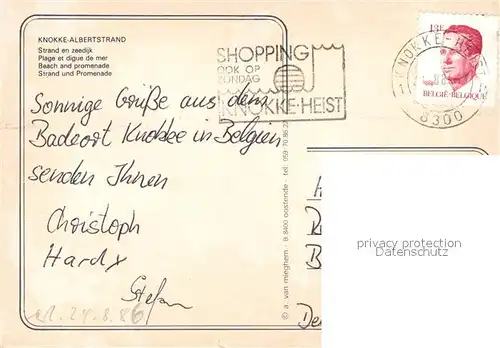 KNOKKE-ALBERTSTRAND
Strand en zeedijk
Plage et digue de mer
Beach and promenade
Strand und Promenade
SHOPPING
OOK OP
ZONDAG
KNOKKE-HEIST
KNOKKE-HEIST
8300
13F
BELGIË-BELGIQUE
Sonnige Grüße aus dem
Badeort Knokke in Belgien
senden Ihnen
Christoph
Hardy
Stefan
© a. van mieghem - B 8400 oostende - tel. 059 70 86 22
privacy protection
Datenschutz